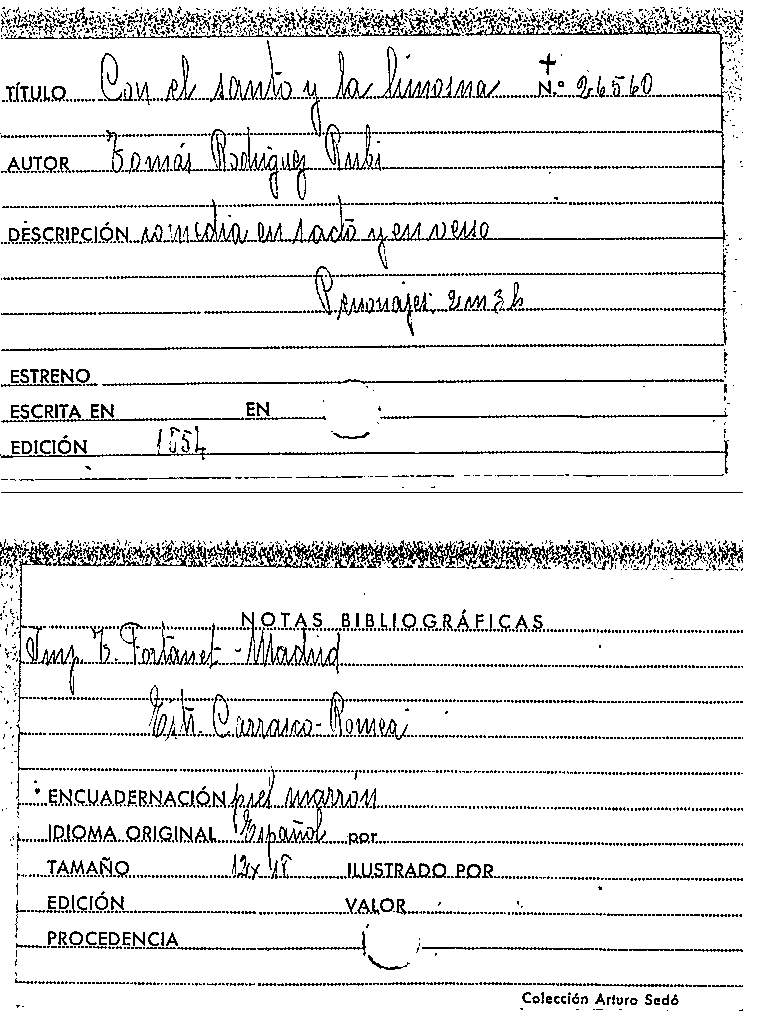 TÍTULO Con el santo y la limosna N.º 26560
AUTOR Tomás Rodriguez Rubi
DESCRIPCIÓN comedia en 1 acto y en verso
Personajes: 2 m 3 h
ESTRENO
ESCRITA EN EN
EDICIÓN 1854
NOTAS BIBLIOGRÁFICAS
Imp. T. Fortanet - Madrid
Estr. Carrasco - Romea
ENCUADERNACIÓN piel marrón
IDIOMA ORIGINAL Español por
TAMAÑO 12 x 18 ILUSTRADO POR
EDICIÓN VALOR
PROCEDENCIA
Colección Arturo Sedó